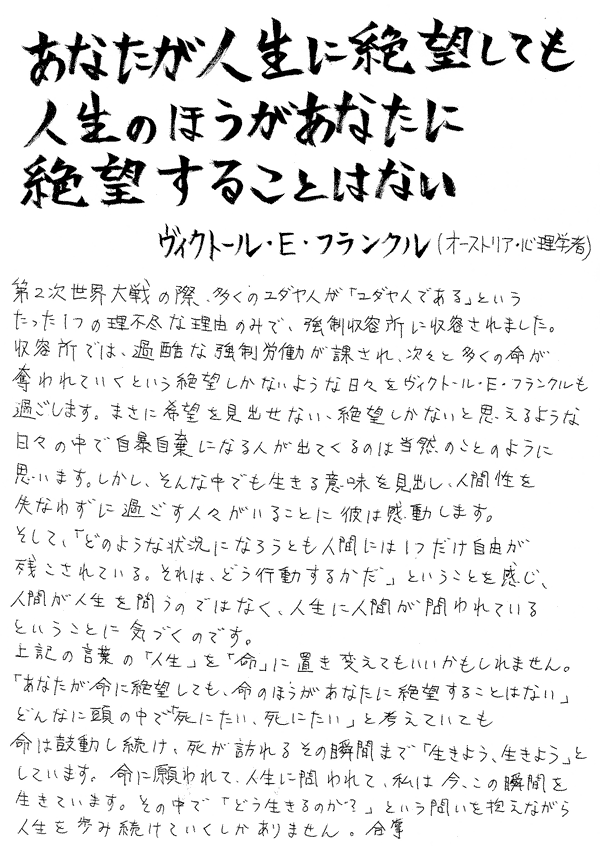 あなたが人生に絶望しても
人生のほうがあなたに
絶望することはない
ヴィクトール・E・フランクル(オーストリア・心理学者)
第2次世界大戦の際、多くのユダヤ人が「ユダヤ人である」という
たった1つの理不尽な理由のみで、強制収容所に収容されました。
収容所では、過酷な強制労働が課され、次々と多くの命が
奪われていくという絶望しかないような日々をヴィクトール・E・フランクルも
過ごします。まさに希望を見出せない、絶望しかないと思えるような
日々の中で自暴自棄になる人が出てくるのは当然のことのように
思います。しかし、そんな中でも生きる意味を見出し、人間性を
失なわずに過ごす人々がいることに彼は感動します。
そして、「どのような状況になろうとも人間には1つだけ自由が
残こされている。それは、どう行動するかだ」ということを感じ、
人間が人生を問うのではなく、人生に人間が問われている
ということに気づくのです。
上記の言葉の「人生」を「命」に置き変えてもいいかもしれません。
「あなたが命に絶望しても、命のほうがあなたに絶望することはない」
どんなに頭の中で「死にたい、死にたい」と考えていても
命は鼓動し続け、死が訪れるその瞬間まで「生きよう、生きよう」と
しています。命に願われて、人生に問われて、私は今、この瞬間を
生きています。その中で「どう生きるのが?」という問いを抱えながら
人生を歩み続けていくしかありません。合掌